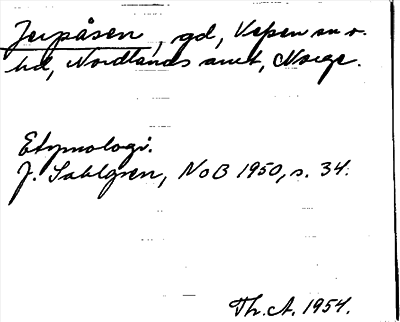 Jerpåsen, gd, Vefsen sn o.
hd, Nordlands amt, Norge.
Etymologi.
J. Sahlgren, NoB 1950, s. 34.
Th. A. 1954.